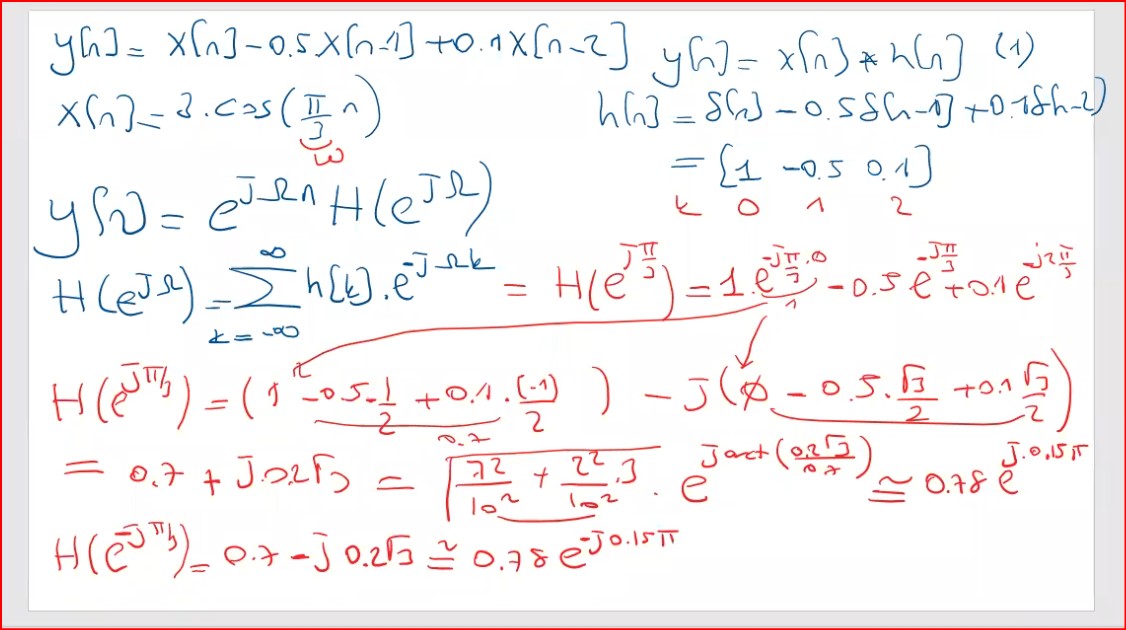 y[n] = x[n] - 0.5x[n-1] + 0.1x[n-2]
y[n] = x[n] * h[n] (1)
x[n] = 3.cos(π/3 n)
ω
h[n] = δ[n] - 0.5δ[n-1] + 0.1δ[n-2)
= [1 -0.5 0.1]
k 0 1 2
y[n] = e^{jΩn} H(e^{jΩ})
H(e^{jΩ}) = ∑_{k=-∞}^{∞} h[k].e^{-jΩk} = H(e^{jπ/3}) = 1.e^{-jπ/3.0} - 0.5e^{-jπ/3} + 0.1e^{-j2π/3}
1
H(e^{jπ/3}) = (1 - 0.5.1/2 + 0.1.(-1)/2) - j(0 - 0.5.√3/2 + 0.1√3/2)
0.7
= 0.7 + j0.2√3 = √(7²/10² + 2²/10².3) . e^{j arct(0.2√3/0.7)} ≅ 0.78e^{j.0.15π}
H(e^{-jπ/3}) = 0.7 - j0.2√3 ≅ 0.78e^{-j0.15π}